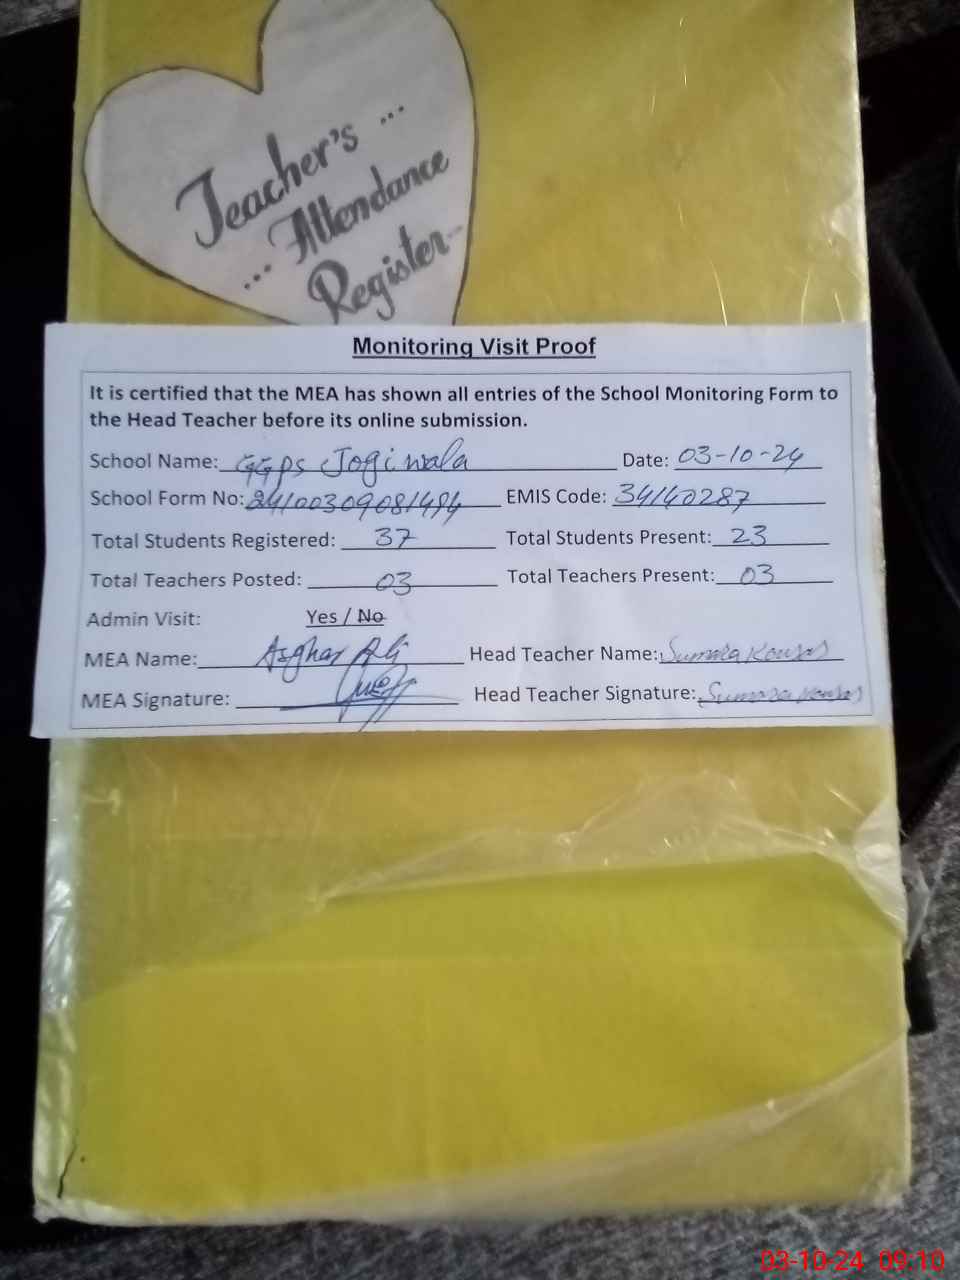 Teacher's ...
... Attendance
Register..
Monitoring Visit Proof
It is certified that the MEA has shown all entries of the School Monitoring Form to
the Head Teacher before its online submission.
School Name: GGPS Jogi wala Date: 03-10-24
School Form No: 24100309081494 EMIS Code: 34140287
Total Students Registered: 37 Total Students Present: 23
Total Teachers Posted: 03 Total Teachers Present: 03
Admin Visit: Yes / No
MEA Name: Asghar Ali Head Teacher Name: Sumaira Kousar
MEA Signature: Head Teacher Signature: Sumaira Kousar
03-10-24 09:10